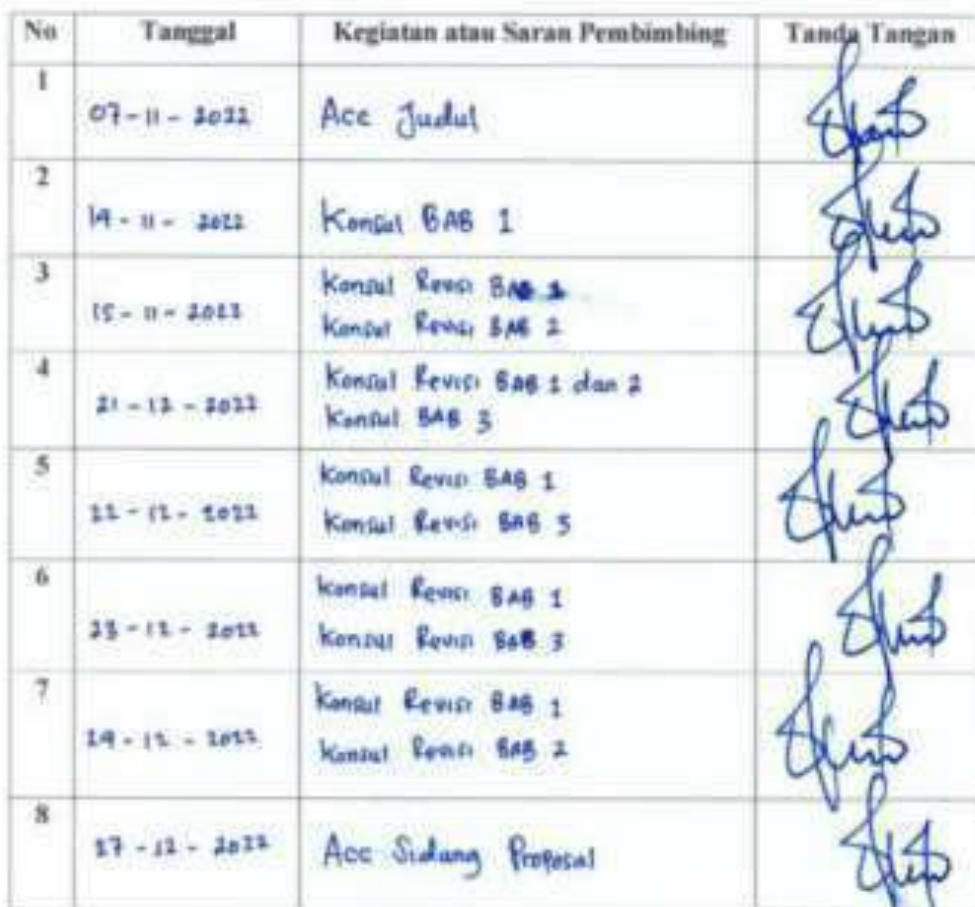 No Tanggal Kegiatan atau Saran Pembimbing Tanda Tangan
1 07-11-2022 Acc Judul
2 14-11-2022 Konsul BAB 1
3 15-11-2022 Konsul Revisi BAB 1
Konsul Revisi BAB 2
4 21-12-2022 Konsul Revisi BAB 1 dan 2
Konsul BAB 3
5 22-12-2022 Konsul Revisi BAB 1
Konsul Revisi BAB 3
6 23-12-2022 Konsul Revisi BAB 1
Konsul Revisi BAB 3
7 24-12-2022 Konsul Revisi BAB 1
Konsul Revisi BAB 2
8 27-12-2022 Acc Sidang Proposal